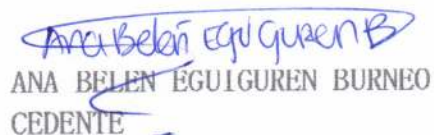 Ana Belén Eguiguren B
ANA BELEN EGUIGUREN BURNEO
CEDENTE